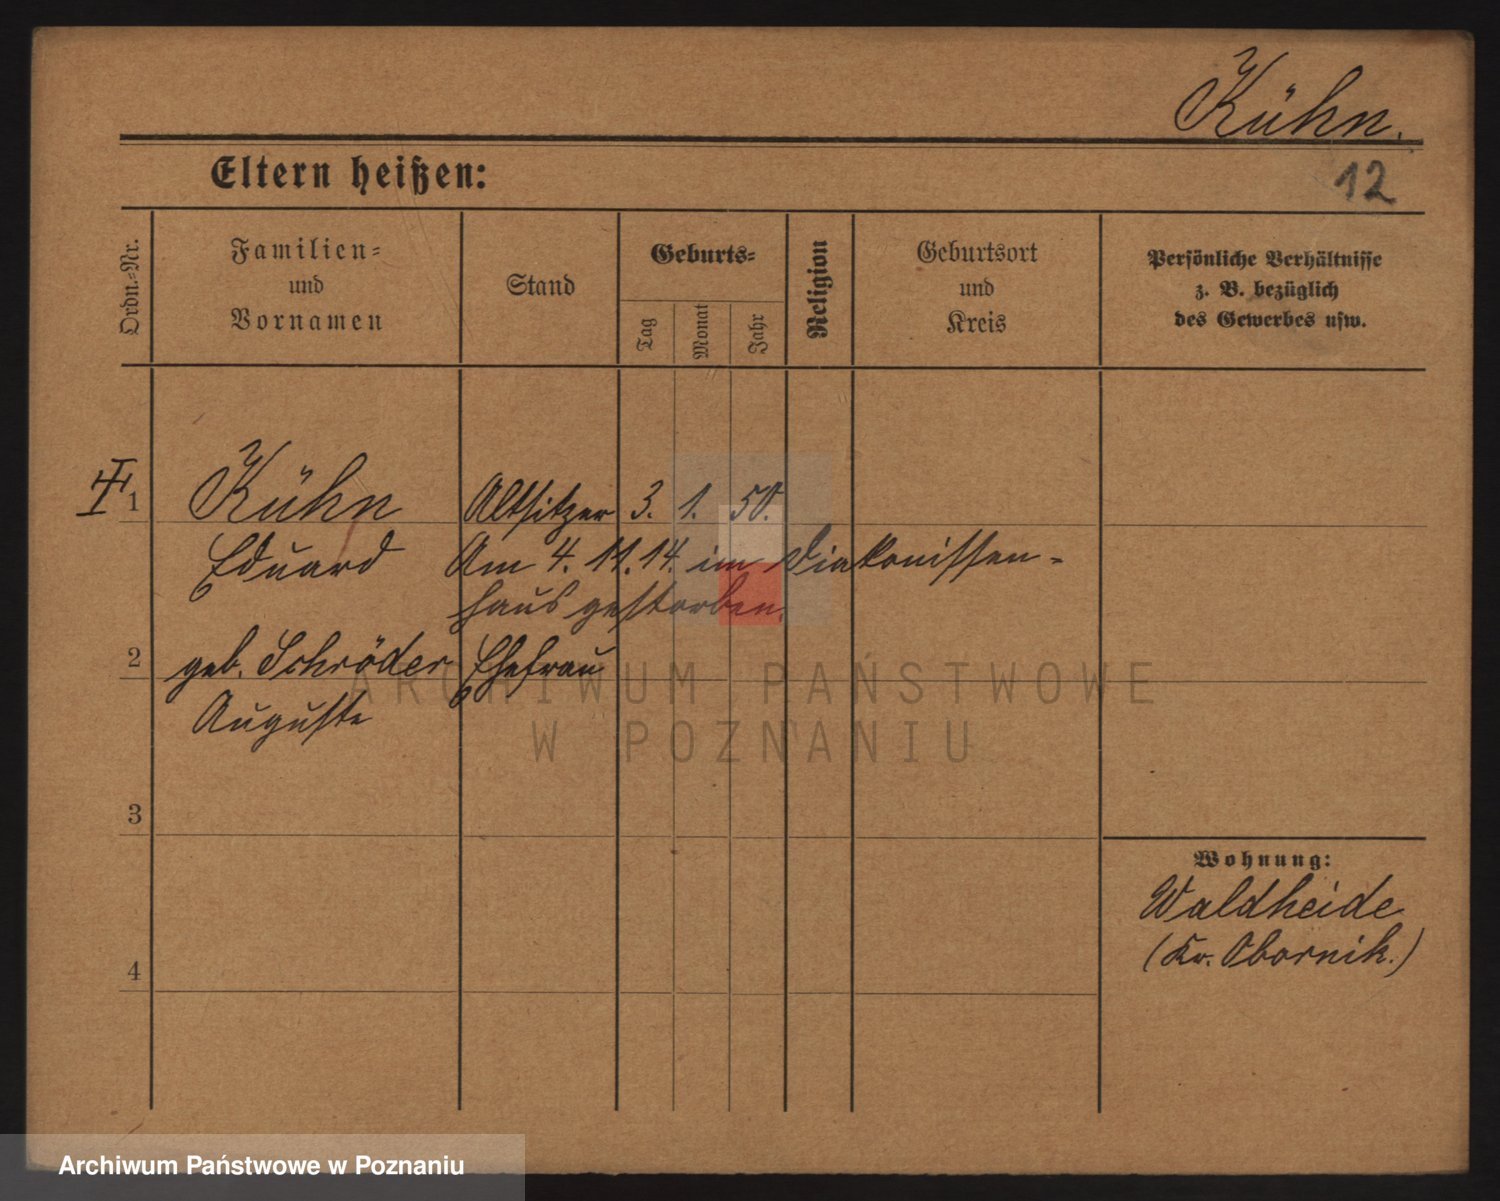 Kühn.
12
Eltern heißen:
Ordn.-Nr.
Familien-
und
Vornamen
Stand
Geburts-
Tag
Monat
Jahr
Religion
Geburtsort
und
Kreis
Persönliche Verhältnisse
z. B. bezüglich
des Gewerbes usw.
1
Kühn Altsitzer 3. 1. 50.
Eduard Am 4. 11. 14. im Diakonissen-
haus gestorben.
2 geb. Schröder Ehefrau
Auguste
3
4
Wohnung:
Waldheide
(Kr. Obornik.)
ARCHIWUM PAŃSTWOWE
W POZNANIU
Archiwum Państwowe w Poznaniu